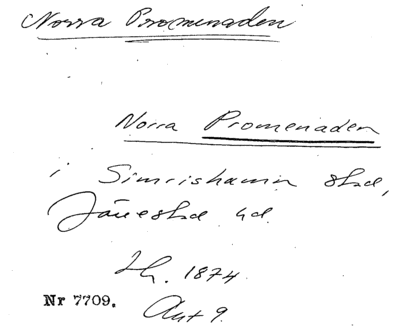 Norra Promenaden
Norra Promenaden
i Simrishamn stad,
Järrestad hd.
Lh. 1874
Nr 7709. Ant 9.